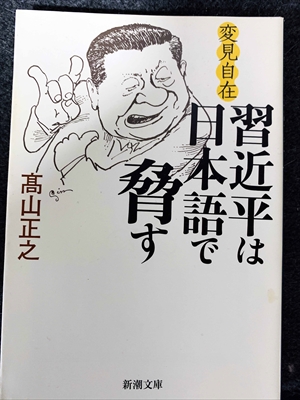 変見自在
習近平は
日本語で
脅す
髙山正之
新潮文庫